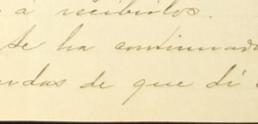 à recibirlos.
se ha continuado
das de que di